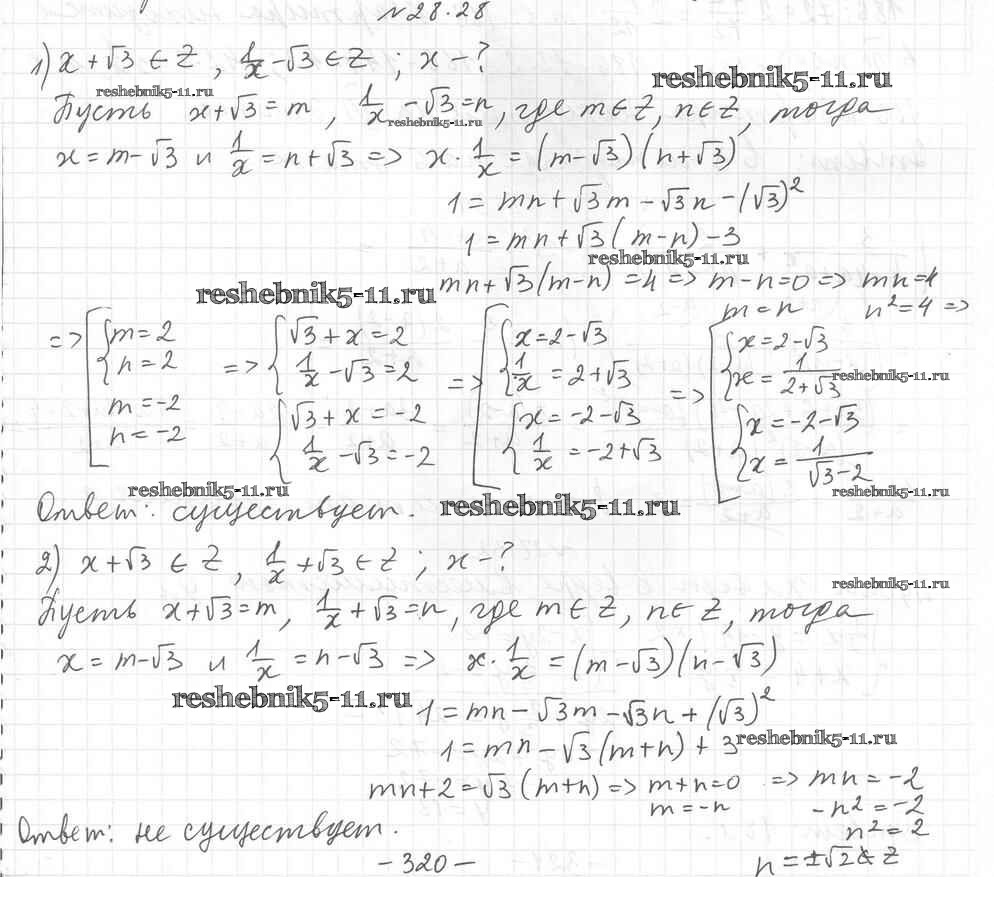 №28.28
1) x + √3 ∈ Z, 1/x - √3 ∈ Z; x - ?
reshebnik5-11.ru
reshebnik5-11.ru
Пусть x + √3 = m, 1/x - √3 = n, где m ∈ Z, n ∈ Z, тогда
reshebnik5-11.ru
x = m - √3 и 1/x = n + √3 => x · 1/x = (m - √3)(n + √3)
1 = mn + √3 m - √3 n - (√3)²
1 = mn + √3 (m - n) - 3
reshebnik5-11.ru
mn + √3 (m - n) = 4 => m - n = 0 => mn = 4
reshebnik5-11.ru
m = n n² = 4 =>
=> [ { m = 2 n = 2 m = -2 n = -2 => { √3 + x = 2 1/x - √3 = 2 { √3 + x = -2 1/x - √3 = -2 => [ { x = 2 - √3 1/x = 2 + √3 { x = -2 - √3 1/x = -2 + √3 => [ { x = 2 - √3 x = 1/(2 + √3) { x = -2 - √3 x = 1/(√3 - 2)
reshebnik5-11.ru
reshebnik5-11.ru
reshebnik5-11.ru
Ответ: существует.
reshebnik5-11.ru
2) x + √3 ∈ Z, 1/x + √3 ∈ Z; x - ?
reshebnik5-11.ru
Пусть x + √3 = m, 1/x + √3 = n, где m ∈ Z, n ∈ Z, тогда
x = m - √3 и 1/x = n - √3 => x · 1/x = (m - √3)(n - √3)
reshebnik5-11.ru
1 = mn - √3 m - √3 n + (√3)²
1 = mn - √3 (m + n) + 3
reshebnik5-11.ru
mn + 2 = √3 (m + n) => m + n = 0 => mn = -2
m = -n -n² = -2
Ответ: не существует.
n² = 2
- 320 -
n = ±√2 ∉ Z